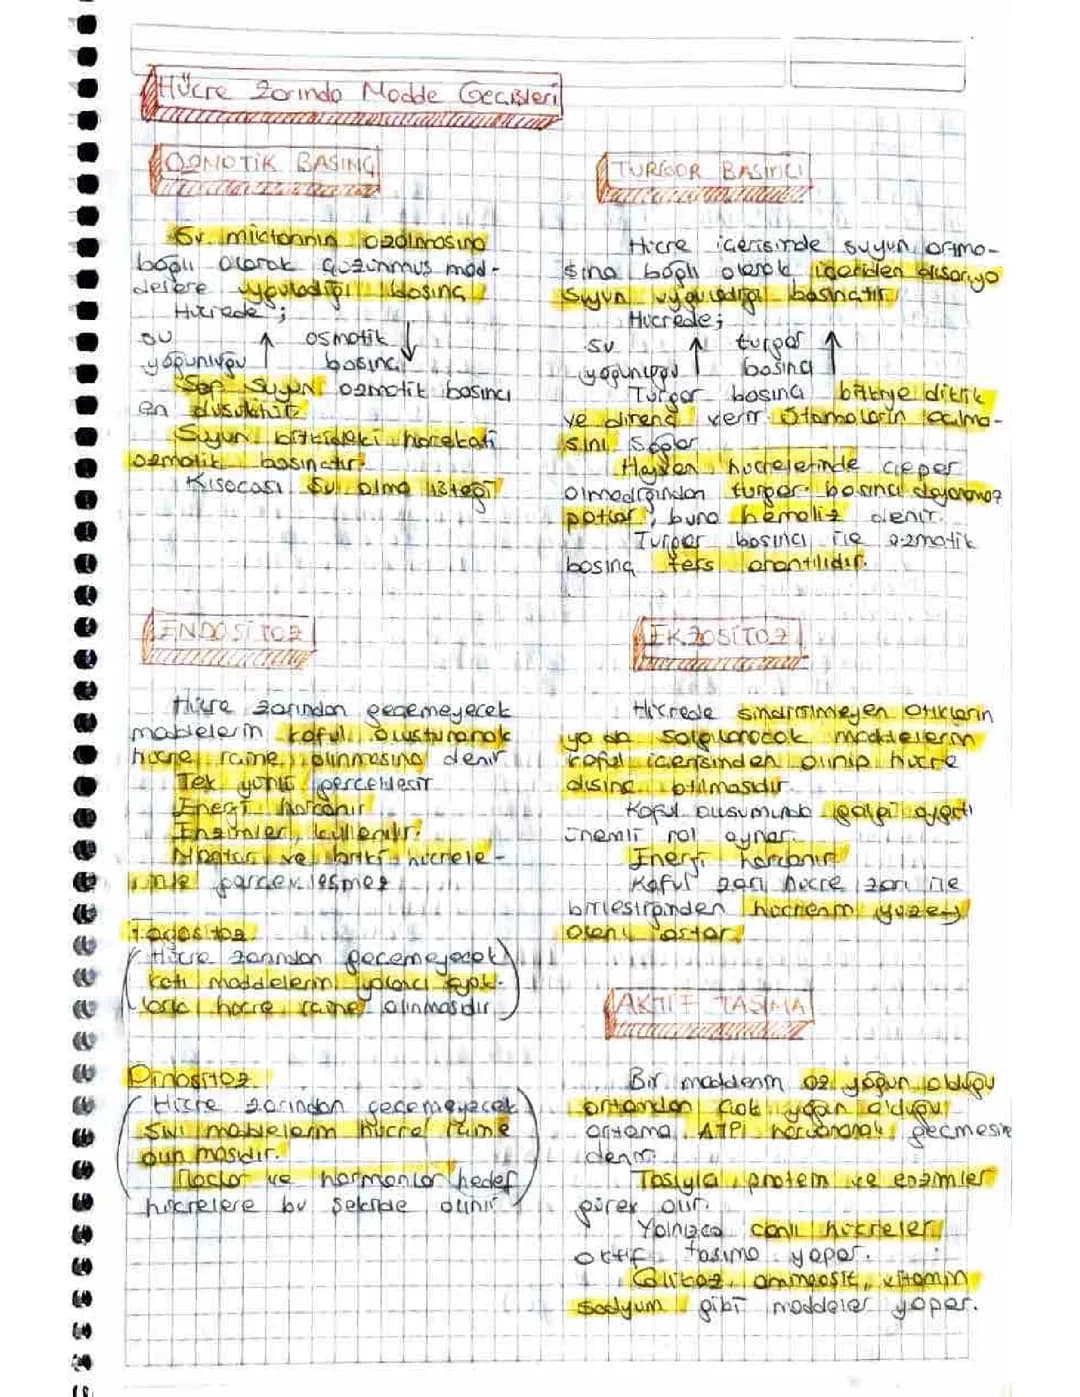 Hücre Zarında Madde Geçişleri
OZMOTİK BASINÇ
Su miktarının azalmasına
bağlı olarak çözünmüş mad-
delere uyguladığı basınç
Hücrede;
su
yoğunluğu ↑ osmotik
basınç ↓
Saf suyun ozmotik basıncı
en düşüktür
Suyun bitkideki hareketi
ozmotik basınçtır.
Kısacası su alma isteği
ENDOSİTOZ
Hücre zarından geçemeyecek
maddelerin koful oluşturarak
hücre içine alınmasına denir
Tek yönlü gerçekleşir
Enerji harcanır
Enzimler kullanılır.
ve bitki hücrele-
rinde gerçekleşmez
Fagositoz
Hücre zarından geçemeyecek
katı maddelerin yalancı ayak-
larla hücre içine alınmasıdır
Pinositoz
Hücre zarından geçemeyecek
sıvı maddelerin hücre içine
alınmasıdır.
İlaçlar ve hormonlar hedef
hücrelere bu şekilde alınır
TURGOR BASINCI
Hücre içerisinde suyun artma-
sına bağlı olarak içeriden dışarıya
suyun uyguladığı basınçtır
Hücrede;
su
yoğunluğu ↑ turgor
basınç ↑
Turgor basıncı bitkiye diklik
ve direnç verir Stomaların açılma-
sını sağlar
Hayvan hücrelerinde çeper
olmadığından turgor basıncı dayanamaz
patlar, buna hemoliz denir.
Turgor basıncı ile ozmotik
basınç ters orantılıdır.
EKZOSİTOZ
Hücrede sindirilmeyen atıkların
ya da salgılanacak maddelerin
koful içerisinden alınıp hücre
dışına atılmasıdır
Koful oluşumunda golgi aygıtı
önemli rol oynar.
Enerji harcanır
Koful zarı hücre zarı ile
birleştiğinden hücrenin yüzey
alanı artar.
AKTİF TAŞIMA
Bir maddenin az yoğun olduğu
ortamdan çok yoğun olduğu
ortama ATP harcanarak geçmesine
denir.
Taşıyıcı protein ve enzimler
görev alır.
Yalnızca canlı hücreler
aktif taşıma yapar.
Glikoz, aminoasit, vitamin
sodyum gibi maddeler yapar.